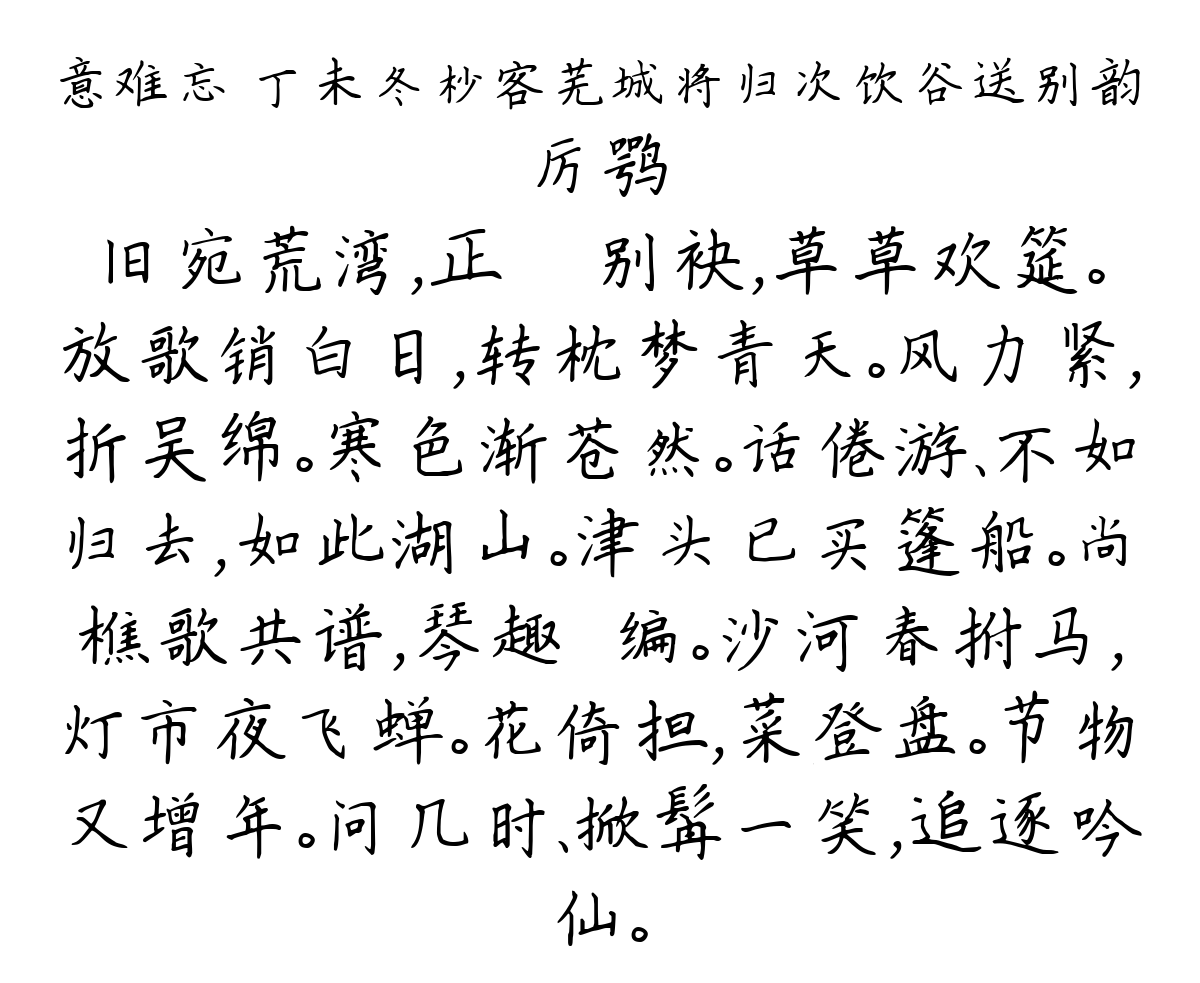 意难忘 丁未冬杪客芜城将归次饮谷送别韵
厉鹗
旧宛荒湾,正 别袂,草草欢筵。
放歌销白日,转枕梦青天。风力紧,
折吴绵。寒色渐苍然。话倦游、不如
归去,如此湖山。津头已买篷船。尚
樵歌共谱,琴趣 编。沙河春拊马,
灯市夜飞蝉。花倚担,菜登盘。节物
又增年。问几时、掀髯一笑,追逐吟
仙。